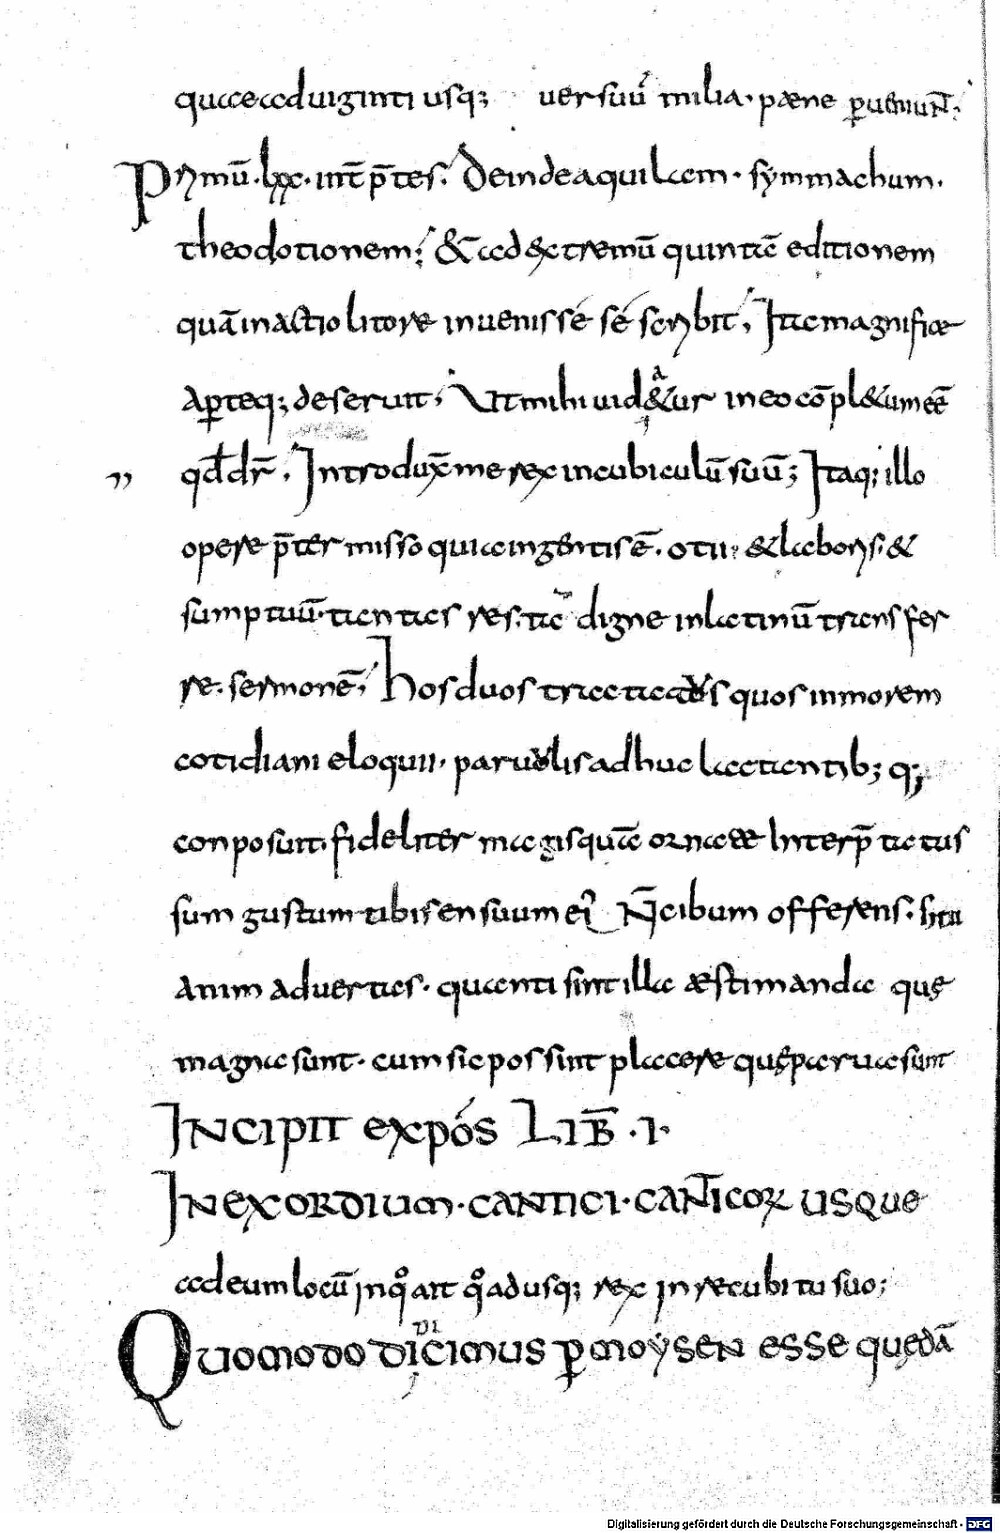 quae ad uiginti usq; uersuū milia. paene ꝑueniunt;
Primū .lxx. int̄p̄tes. Deinde aquilam. symmachum.
theodotionem; &̄ ad extremū quintā editionem
quā in actio litore inuenisse se scribit, Ita magnifice
aꝑteq; deseruit, Ut mihi uid&ur in eo cōpl&um eē
qd̄ dr̄, Introdux̄ me rex in cubiculū suū; Itaq; illo
opere p̄termisso quia ingentis ē. otii. & laboris. &
sumptuū. tantas res. tā digne in latinū transfer
re. sermonē, Hos duos tractatus quos in morem
cotidiani eloquii. paruulis adhuc lactantib; q;
conposuit. fideliter magis quā ornate Interp̄tatus
sum gustum tibi sensuum ei N̄ cibum offerens. ut tu
animaduertas. quanti sint illa æstimanda quę
magna sunt. cum sic possint placere quę parua sunt
INCIPIT expós LIB̄ .I.
IN EXORDIUM. CANTICI. CANT̄ICOR USQUE
ad eum locū in q̊ ait q̊adusq; rex in recubitu suo;
QUOMODO DIDICIMUS ꝑ MOYSEN ESSE quędā
Digitalisierung gefördert durch die Deutsche Forschungsgemeinschaft - DFG